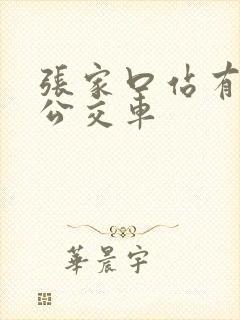 張家口佔有
公交車
華晨宇